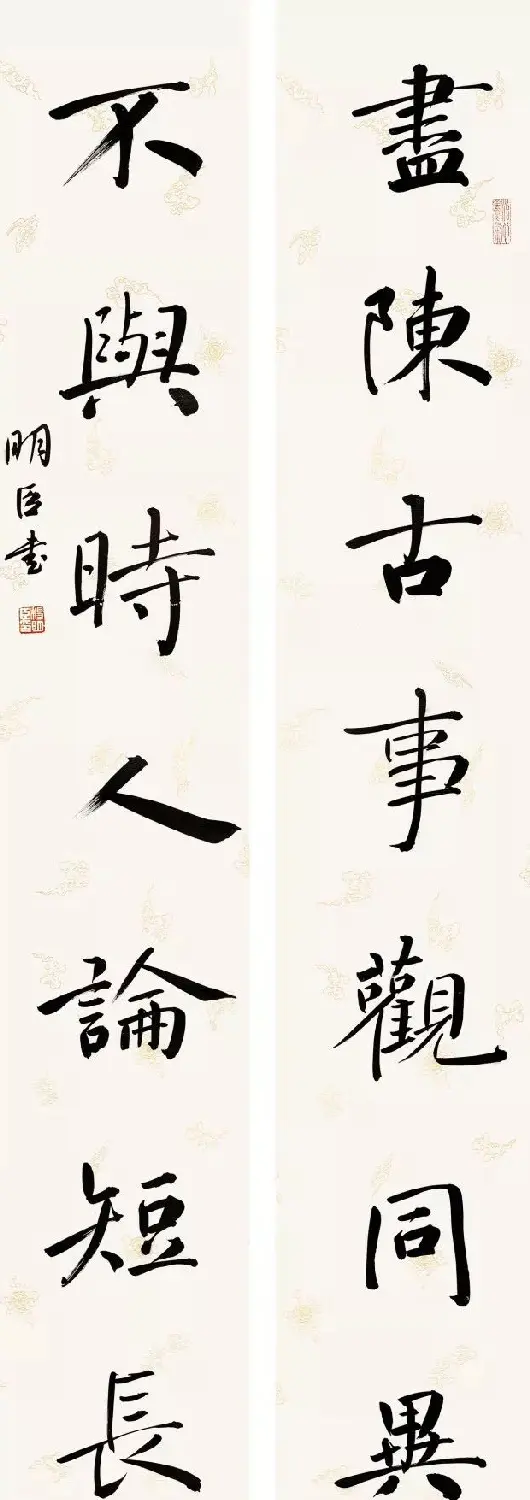 盡陳古事觀同異
不與時人論短長
明臣書